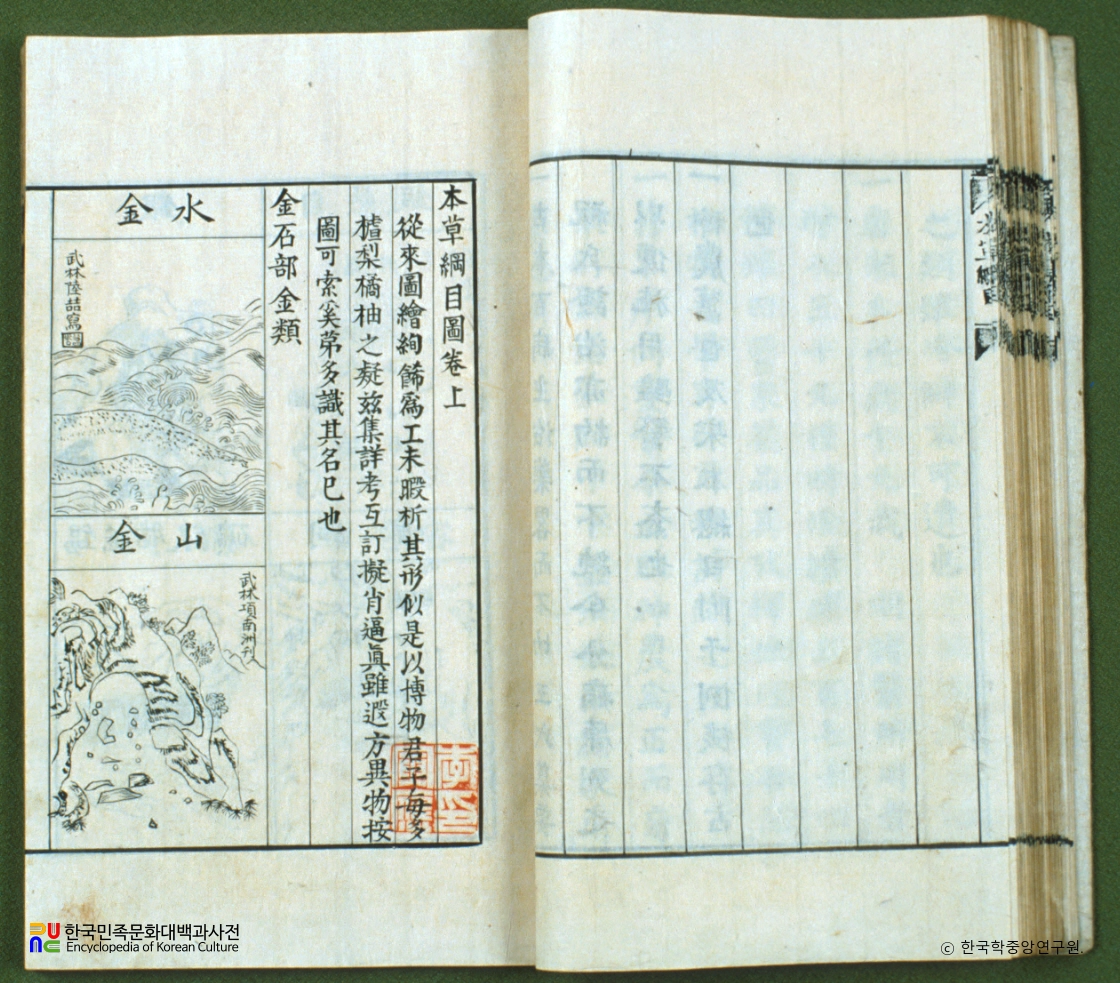 本草綱目圖卷上
從來圖繪絢飾爲工未暇析其形似是以博物君子每多
樝梨橘柚之疑兹集詳考互訂擬肖逼眞雖遐方異物按
圖可索奚苐多識其名已也
金石部金類
水金
武林陸喆寫
山金
武林項南洲刊
本草綱目
한국민족문화대백과사전
Encyclopedia of Korean Culture
ⓒ 한국학중앙연구원